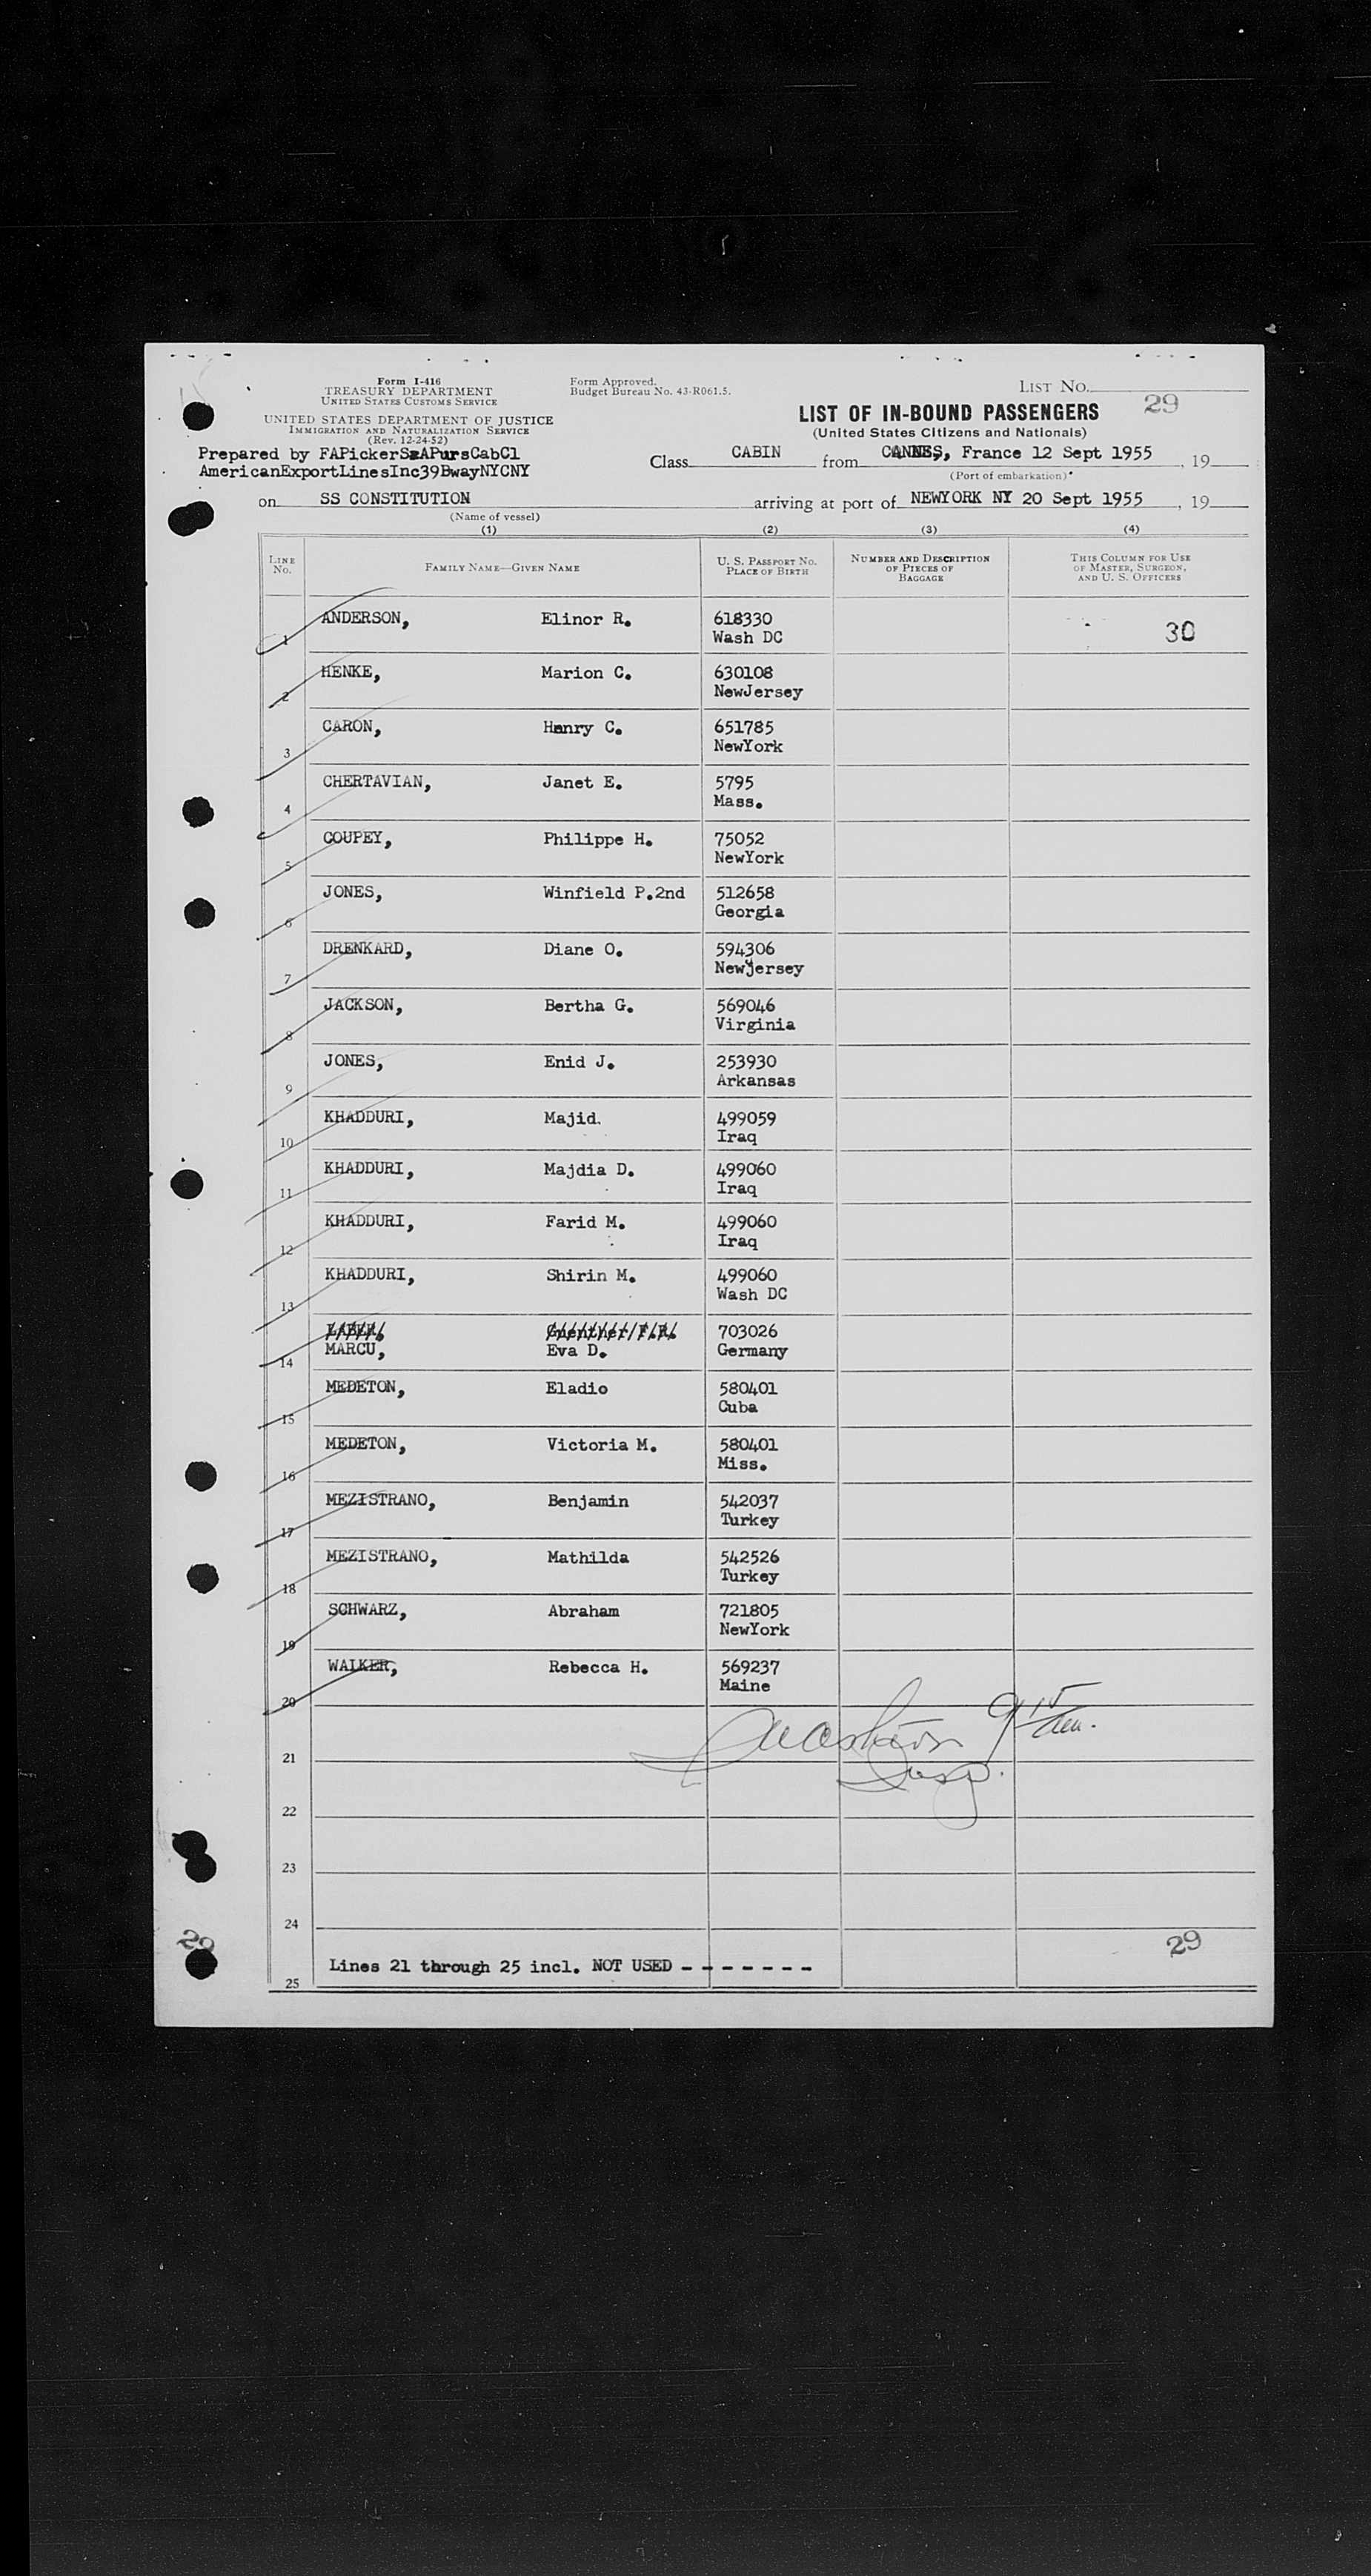 Form I-416
TREASURY DEPARTMENT
UNITED STATES CUSTOMS SERVICE
UNITED STATES DEPARTMENT OF JUSTICE
IMMIGRATION AND NATURALIZATION SERVICE
(Rev. 12-24-52)
Form Approved.
Budget Bureau No. 43-R061.5.
LIST NO.
29
LIST OF IN-BOUND PASSENGERS
(United States Citizens and Nationals)
Prepared by FAPickerSrAPursCabCl
AmericanExportLinesInc39BwayNYCNY
Class CABIN from CANNES, France 12 Sept 1955, 19
(Port of embarkation)
on SS CONSTITUTION arriving at port of NEWYORK NY 20 Sept 1955, 19
(Name of vessel)
(1) (2) (3) (4)
LINE NO. FAMILY NAME—GIVEN NAME U. S. PASSPORT NO. PLACE OF BIRTH NUMBER AND DESCRIPTION OF PIECES OF BAGGAGE THIS COLUMN FOR USE OF MASTER, SURGEON, AND U. S. OFFICERS
1 ANDERSON, Elinor R. 618330 30
Wash DC
2 HENKE, Marion C. 630108
NewJersey
3 CARON, Henry C. 651785
NewYork
4 CHERTAVIAN, Janet E. 5795
Mass.
5 COUPEY, Philippe H. 75052
NewYork
6 JONES, Winfield P.2nd 512658
Georgia
7 DRENKARD, Diane O. 594306
NewJersey
8 JACKSON, Bertha G. 569046
Virginia
9 JONES, Enid J. 253930
Arkansas
10 KHADDURI, Majid. 499059
Iraq
11 KHADDURI, Majdia D. 499060
Iraq
12 KHADDURI, Farid M. 499060
Iraq
13 KHADDURI, Shirin M. 499060
Wash DC
Guenther 703026
14 MARCU, Eva D. Germany
15 MEDETON, Eladio 580401
Cuba
16 MEDETON, Victoria M. 580401
Miss.
17 MEZISTRANO, Benjamin 542037
Turkey
18 MEZISTRANO, Mathilda 542526
Turkey
19 SCHWARZ, Abraham 721805
NewYork
20 WALKER, Rebecca H. 569237
Maine
21
Insp.
22
23
24
29
29
Lines 21 through 25 incl. NOT USED - - - - - - -
25